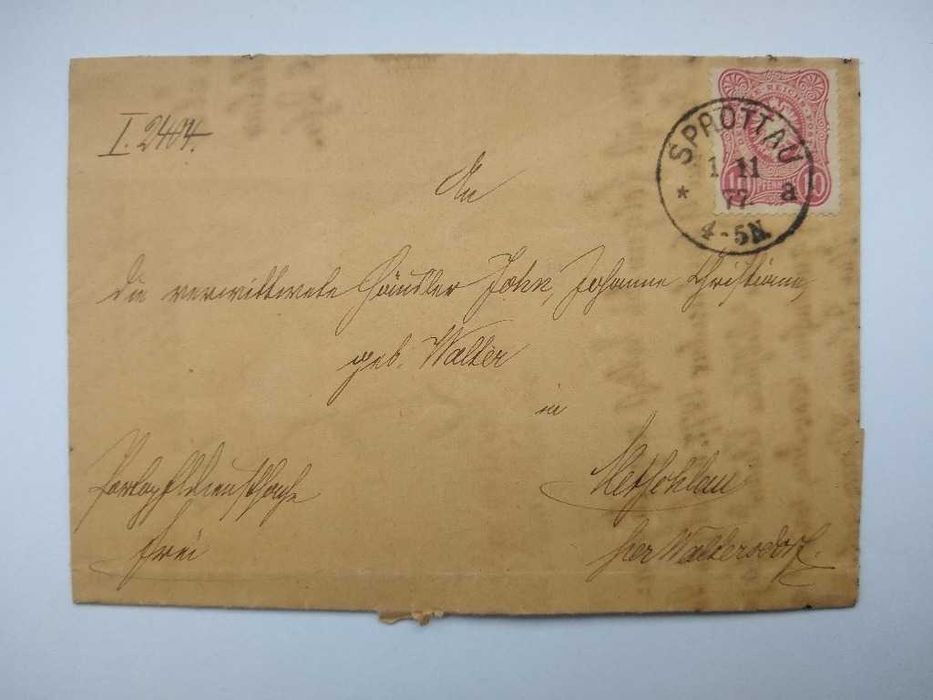 I. 2404.
SPROTTAU
1 11
77
a
4-5N.
REICHS
10 PFENNIG 10
An
die verwittwete Händler John, Johanne Christiane,
geb. Walter
in
per Waltersdorf.
frei